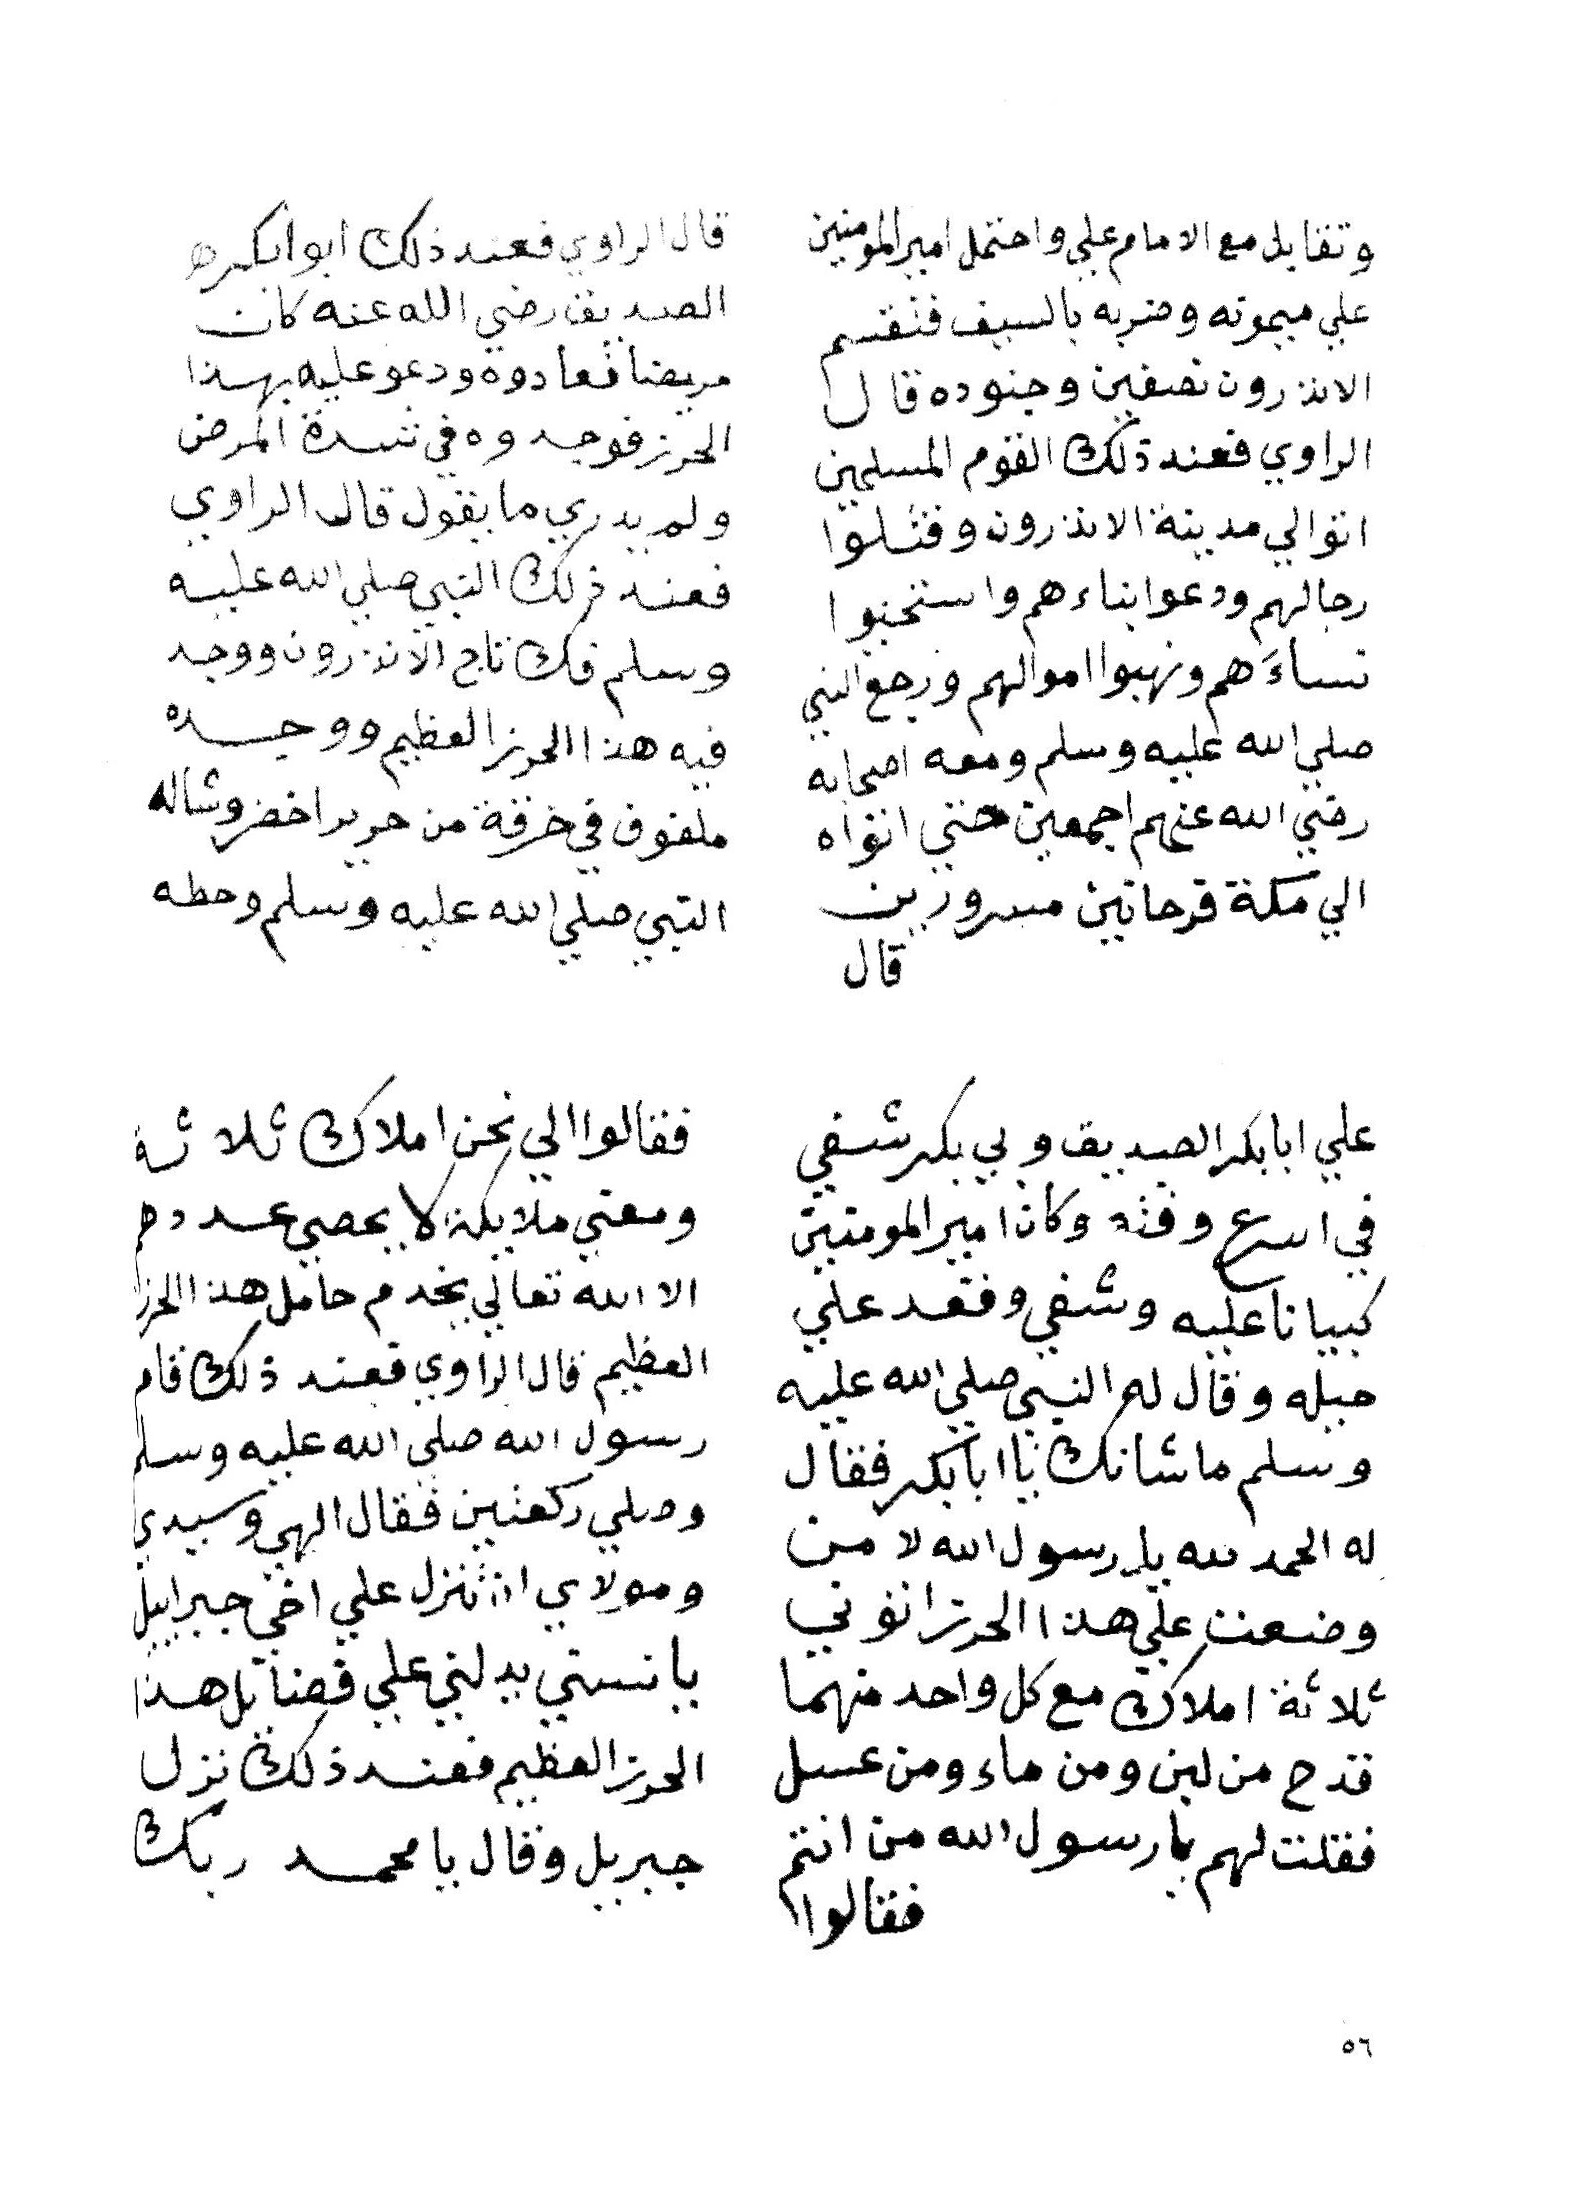 وتقابل مع الامام علي واحتمل امير المومنين
علي ميمونه وضربه بالسيف فنقسم
الاندرون نصفين وجنوده قال
الراوي فعند ذلك القوم المسلمين
اتوا الي مدينة الاندرون وقتلوا
رجالهم ودعوا ابناءهم واستحبوا
نساءَهم ونهبوا اموالهم ورجع النبي
صلي الله عليه وسلم ومعه اصحابه
رضي الله عنهم اجمعين حتي اتواه
الي مكة فرحانين مسرورين
قال
قال الراوي فعند ذلك ابو ابكره
الصديق رضي الله عنه كان
مريضا فعادوه ودعو عليه بهذا
الحرز فوجدوه في شدة المرض
ولم يدري ما يقول قال الراوي
فعند ذلك النبي صلي الله عليه
وسلم فك تاج الاندرون ووجد
فيه هذا الحرز العظيم ووجده
ملفوف في خرقة من حرير اخضر وشاله
النبي صلي الله عليه وسلم وحطه
علي ابا بكر الصديق وبي بكر شفي
في اسرع وقته وكان امير المومنين
كبيانا عليه وشفي وقعد علي
حيله وقال له النبي صلي الله عليه
وسلم ما شانك يا ابا بكر فقال
له الحمد لله يا رسول الله لا من
وضعت علي هذا الحرز اتوني
ثلاثة املاك مع كل واحد منهما
قدح من لبن ومن ماء ومن عسل
فقلت لهم يا رسول الله من انتم
فقالوا
فقالوا الي نحن املاك ثلاثة
ومعني ملايكة لا يحصي عددهم
الا الله تعالي يخدم حامل هذا الحرز
العظيم قال الراوي فعند ذلك قام
رسول الله صلي الله عليه وسلم
وصلي ركعتين فقال الهي وسيدي
ومولاي ان تنزل علي اخي جبراييل
يانستي يدلني علي فضايل هذا
الحرز العظيم فعند ذلك نزل
جبريل وقال يا محمد ربك
٥٦